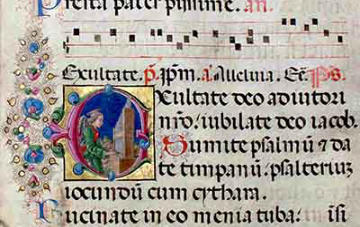 Presta pater piissime. an.
Exultate. p̄. ip̄m. a̍ Alleluia. Ps.
Exultate deo adiutori
nr̄o: iubilate deo iacob.
Sumite psalmū & da
te timpanū: psalteriuz
iocundū cum cythara.
Bucinate in eo menia tuba: ī isi